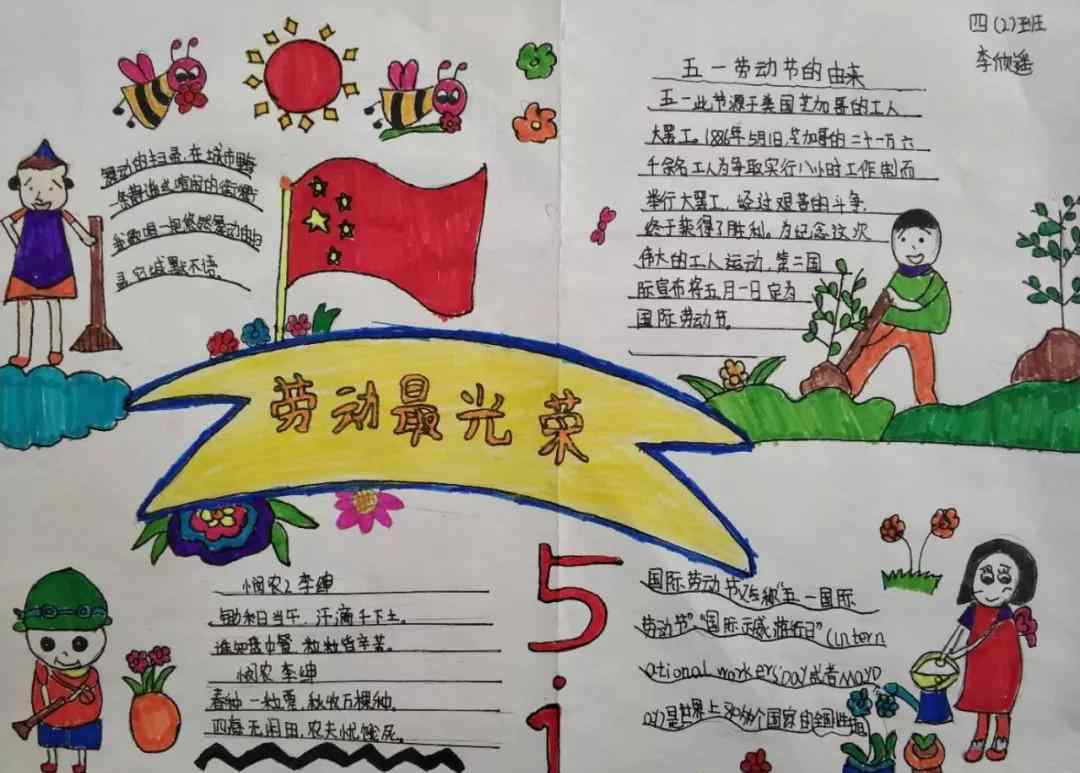 四(2)班
李欣遥
五一劳动节的由来
五一此节源于美国芝加哥的工人
大罢工。1886年5月1日,芝加哥的二十一万六
千余名工人为争取实行八小时工作制而
举行大罢工,经过艰苦的斗争,
终于获得了胜利。为纪念这次
伟大的工人运动,第二国
际宣布将五月一日定为
国际劳动节。
舞动的扫帚,在城市里
的街
默不语,
劳动最光荣
悯农2 李绅
锄禾日当午,汗滴禾下土。
谁知盘中餐,粒粒皆辛苦。
悯农 李绅
春种一粒粟,秋收万棵种。
四海无闲田,农夫忧饿死。
5.1
国际劳动节又称"五一国际
劳动节"、"国际示威游行日"(intern
ational workers'Day或者MayD
ay)是世界上80多个国家的全国性